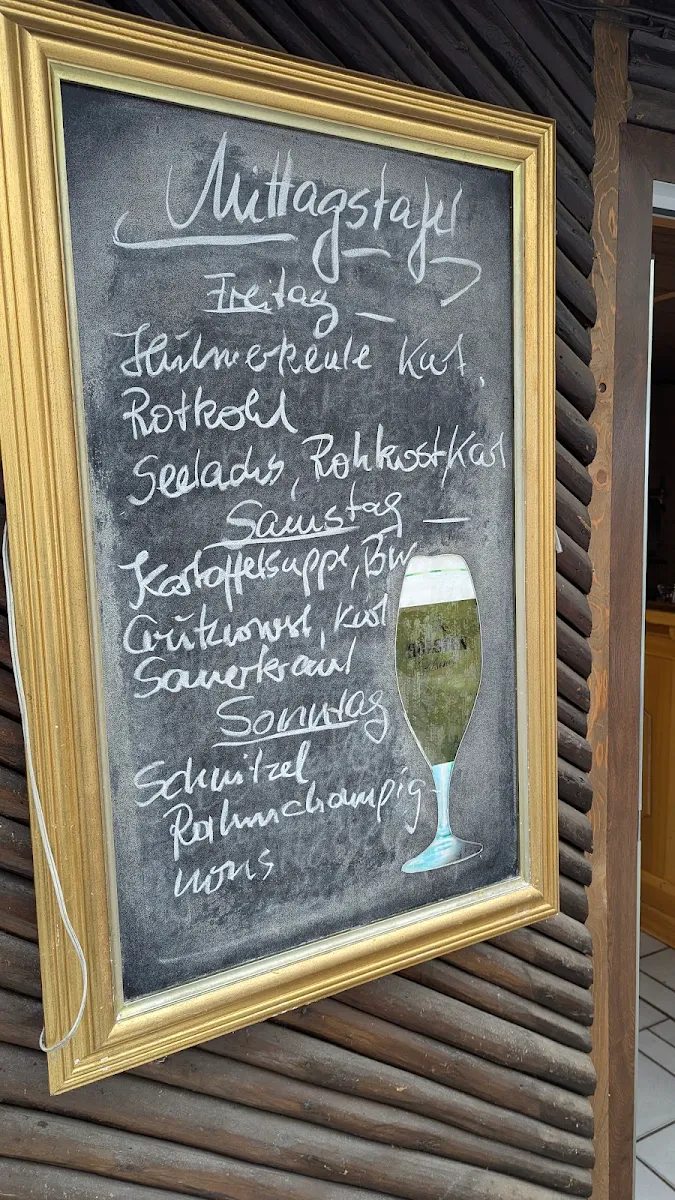 Mittagstafel
Freitag
Hühnerkeule Kart,
Rotkohl
Seelachs, Rohkost/Kart
Samstag
Kartoffelsuppe, BW
Grützwurst, Kart
Sauerkraut
Sonntag
Schnitzel
Rahmchampig-
nons
HOLSTEN